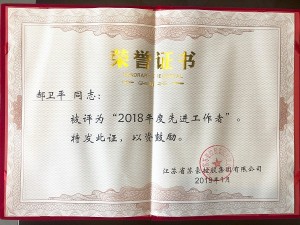 荣誉证书
郝卫平 同志：
被评为“2018年度先进工作者”。
特发此证，以资鼓励。
江苏省苏豪控股集团有限公司
2019年1月